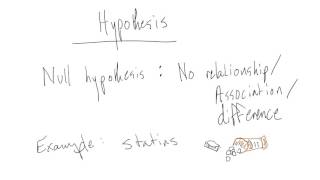 Hypothesis
Null hypothesis : No relationship/
Association/
difference
Example: statins